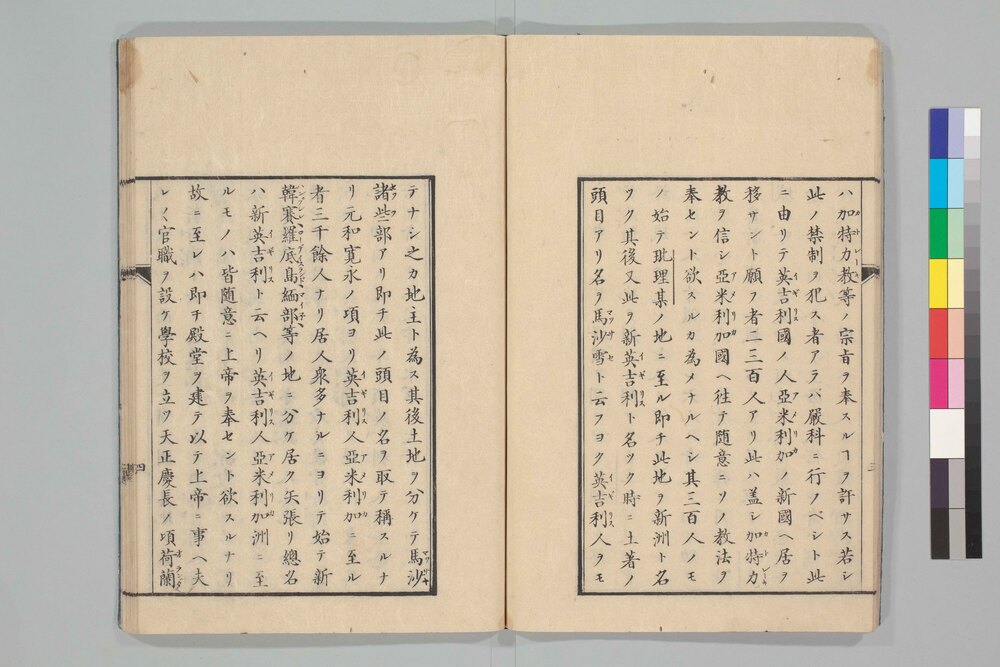 ハ加特力教等ノ宗旨ヲ奉スルヿヲ許サス若シ
此ノ禁制ヲ犯ス者アラバ嚴科ニ行ノベシト此
ニ由リテ英吉利國ノ人亞米利加ノ新國ヘ居ヲ
移サント願フ者二三百人アリ此ハ盖シ加特力
教ヲ信シ亞米利加國ヘ往テ随意ニソノ教法ヲ
奉セント欲スルカ為メナルヘシ其三百人ノモ
ノ始テ玭理某ノ地ニ至ル即チ此地ヲ新洲ト名
ヲク其後又此ヲ新英吉利ト名ツク時ニ土著ノ
頭目アリ名ヲ馬沙雪ト云フヨク英吉利人ヲモ
テナシ之カ地主ト為ス其後土地ヲ分ケテ馬沙
諸些部アリ即チ此ノ頭目ノ名ヲ取テ稱スルナ
リ元和寛永ノ項ヨリ英吉利人亞米利加ニ至ル
者三千餘人ナリ居人衆多ナルニヨリテ始テ新
韓賽羅底島緬部等ノ地ニ分ケ居ク矢張リ總名
ハ新英吉利ト云ヘリ英吉利人亞米利加洲ニ至
ルモノハ皆随意ニ上帝ヲ奉セント欲スルナリ
故ニ至レハ即チ殿堂ヲ建テ以テ上帝ニ事ヘ夫
レ〱官職ヲ設ケ學校ヲ立ツ天正慶長ノ項荷蘭
三
四